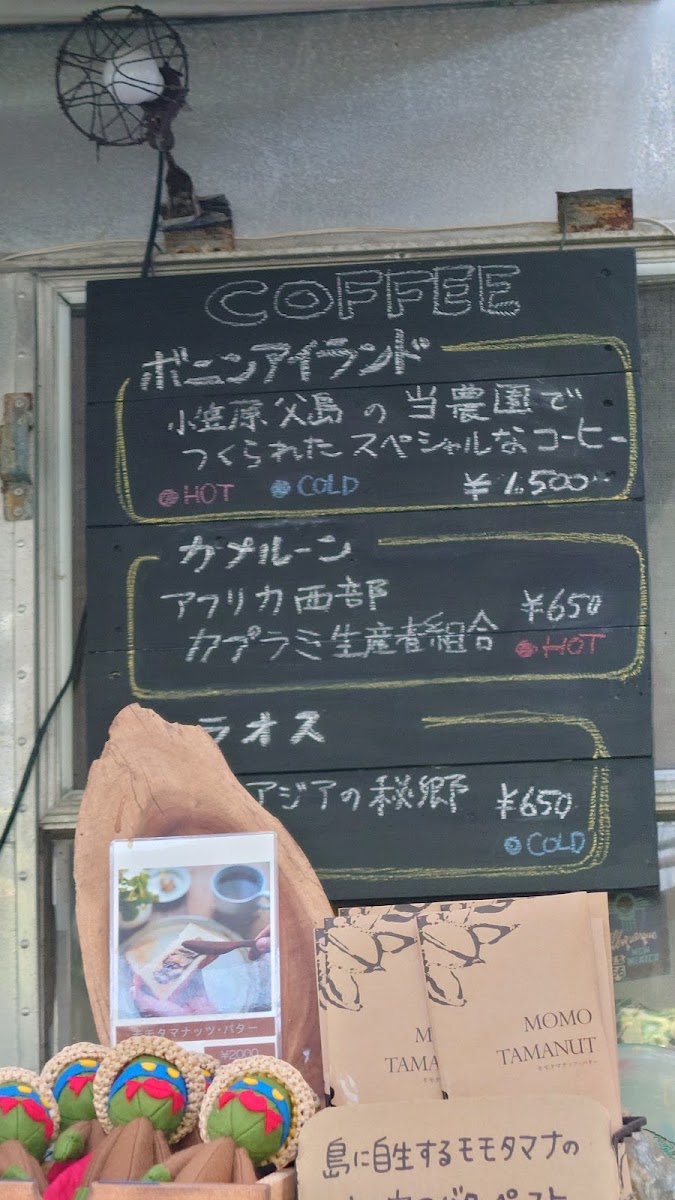 COFFEE
ボニンアイランド
小笠原父島の当農園で
つくられたスペシャルなコーヒー
HOT COLD ¥1,500
カメルーン
アフリカ西部 ¥650
カプラミ生産者組合 HOT
ラオス
アジアの秘郷 ¥650
COLD
モモタマナッツ・バター
¥2000
MOMO
TAMANUT
モモタマナッツ・バター
M
TAMA
島に自生するモモタマナの